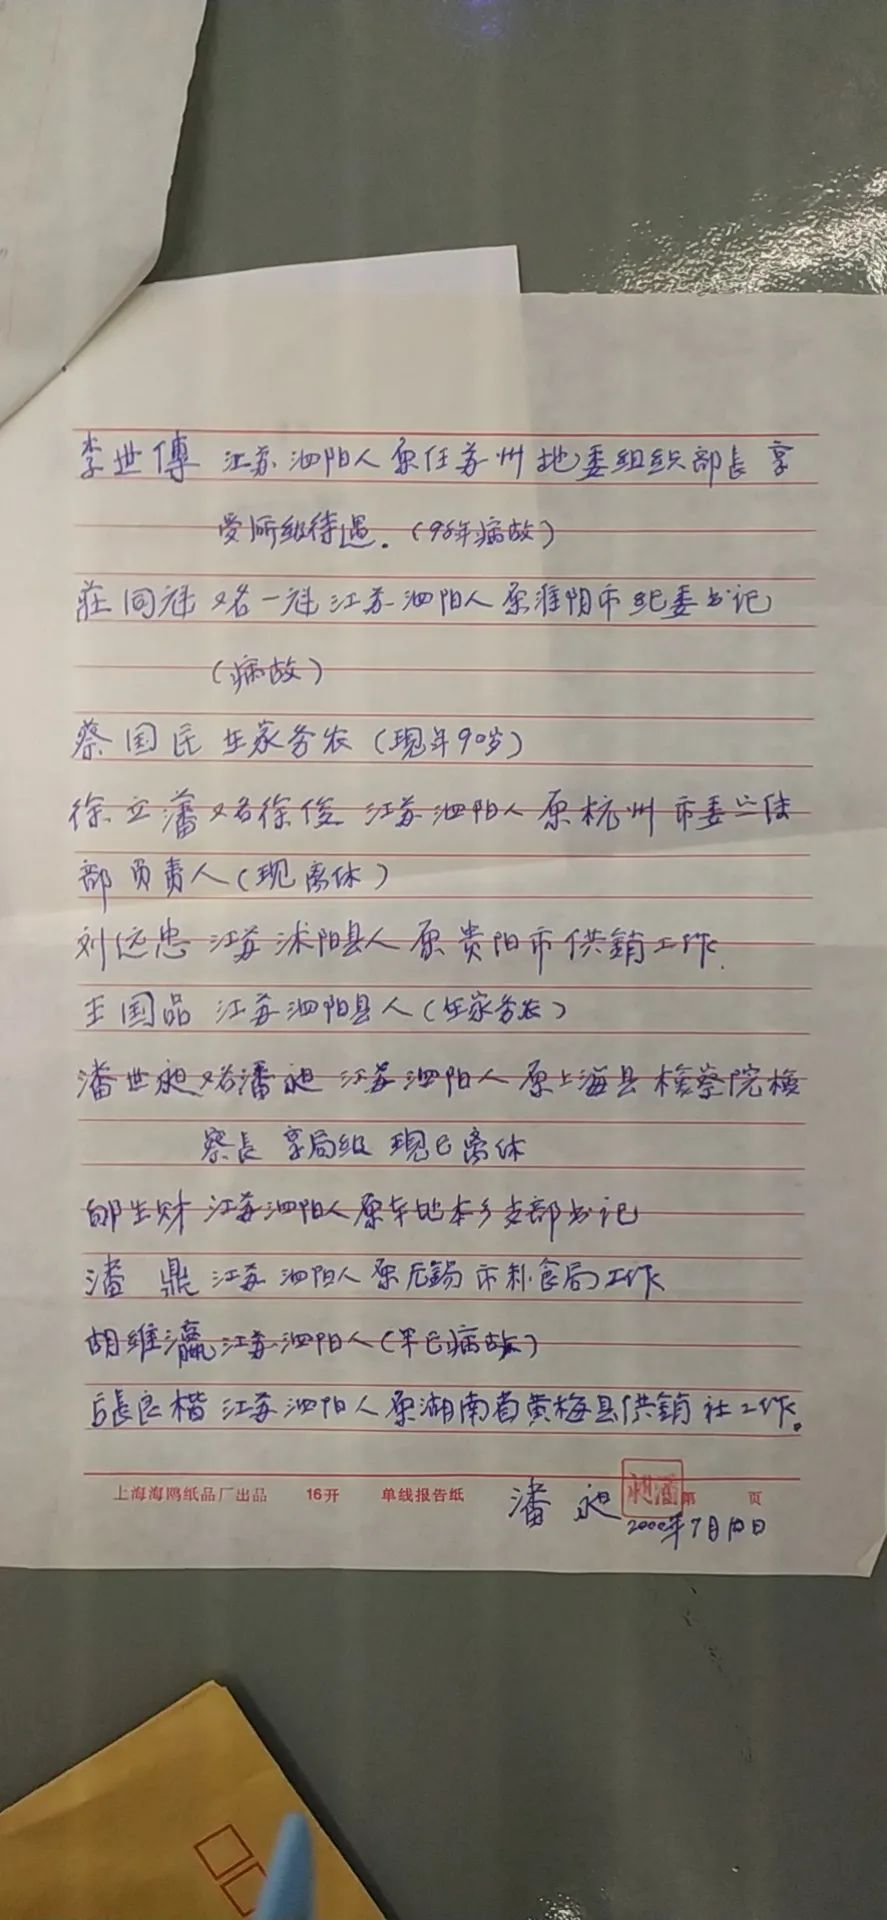 李世傅 江苏泗阳人原任苏州地委组织部长享
受厅级待遇.(98年病故)
莊同冠 又名一冠江苏泗阳人原淮阴市纪委书记
(病故)
蔡国民 在家务农(现年90岁)
徐立藩又名徐俊 江苏泗阳人原杭州市委
部负责人(现离休)
刘远忠 江苏沭阳县人原贵阳市供銷工作.
王国品 江苏泗阳县人(在家务农)
潘世昶又名潘昶 江苏泗阳人原上海县检察院检
察長 享局级 现已离休
邰生财 江苏泗阳人原本地本乡支部书记
潘鼎 江苏泗阳人原无錫市粮食局工作
胡维瀛 江苏泗阳人(早已病故)
張良楷 江苏泗阳人原湖南省黄梅县供銷社工作。
上海海鸥纸品厂出品 16开 单线报告纸 第 页
潘昶
2000年7月10日